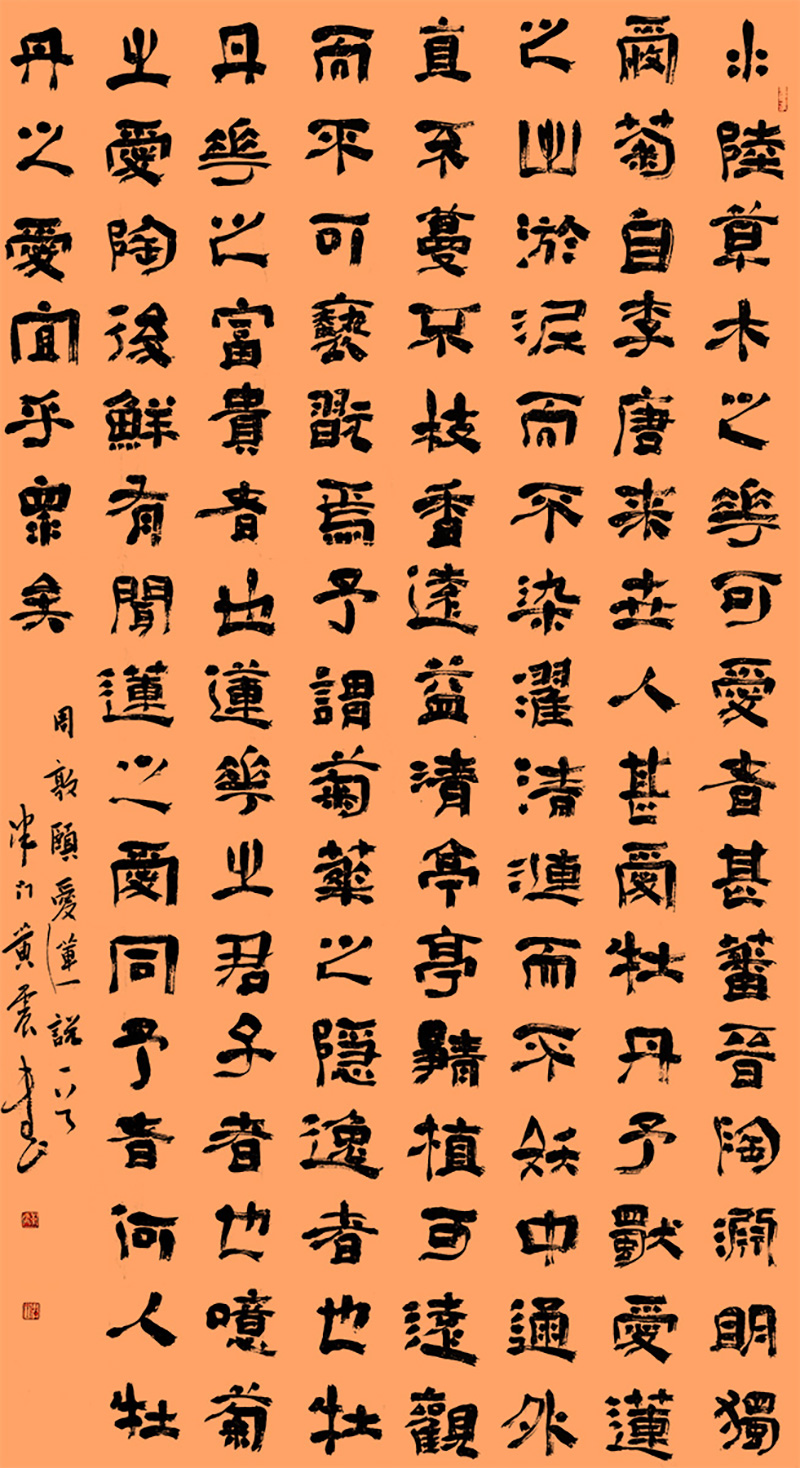 水陸草木之華可愛者甚蕃晉陶淵明獨
愛菊自李唐来世人甚愛牡丹予獨愛蓮
之出淤泥而不染濯清漣而不妖中通外
直不蔓不枝香遠益清亭亭靜植可遠觀
而不可褻翫焉予謂菊華之隱逸者也牡
丹華之富貴者也蓮華之君子者也噫菊
之愛陶後鮮有聞蓮之愛同予者何人牡
丹之愛宜乎眾矣
周敦頤愛蓮說一首
津门黄震書